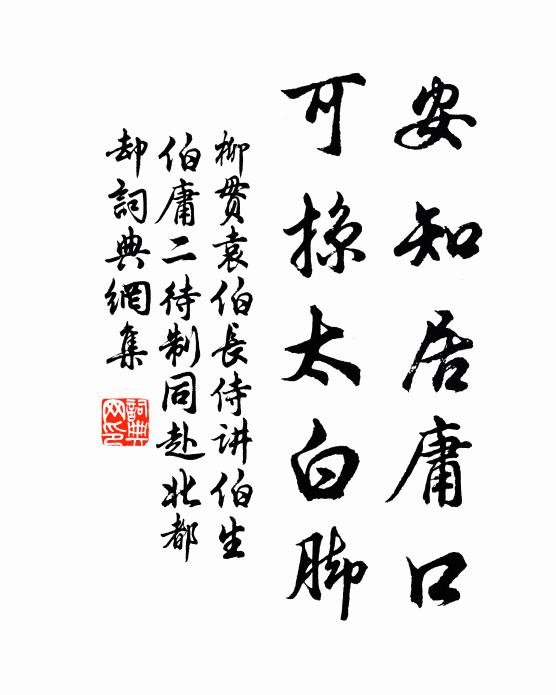 安知居庸口
可掠太白脚
柳贯袁伯長侍讲伯生
伯庸二待制同赴北都
却詞典網集
詞典網印